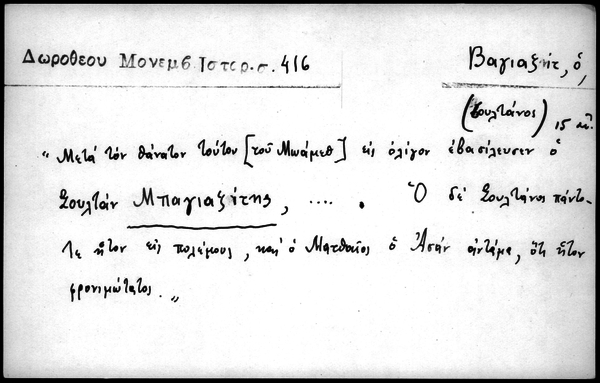 Δωροθεου Μονεμβ. Ιστορ. σ. 416
Βαγιαζήτ, ὁ,
(Σουλτάνος) 15 αἰ.
"Μετά τόν θάνατον τούτου [τοῦ Μωάμεθ] εἰς ὀλίγον ἐβασίλευσεν ὁ
Σουλτάν Μπαγιαζίτης, .... . Ὁ δέ Σουλτάνος πάντο-
τε ἦτον εἰς πολέμους, καί ὁ Ματθαῖος ὁ Ἀσάν ἀντάμα, ὅτι ἦτον
φρονιμώτατος."